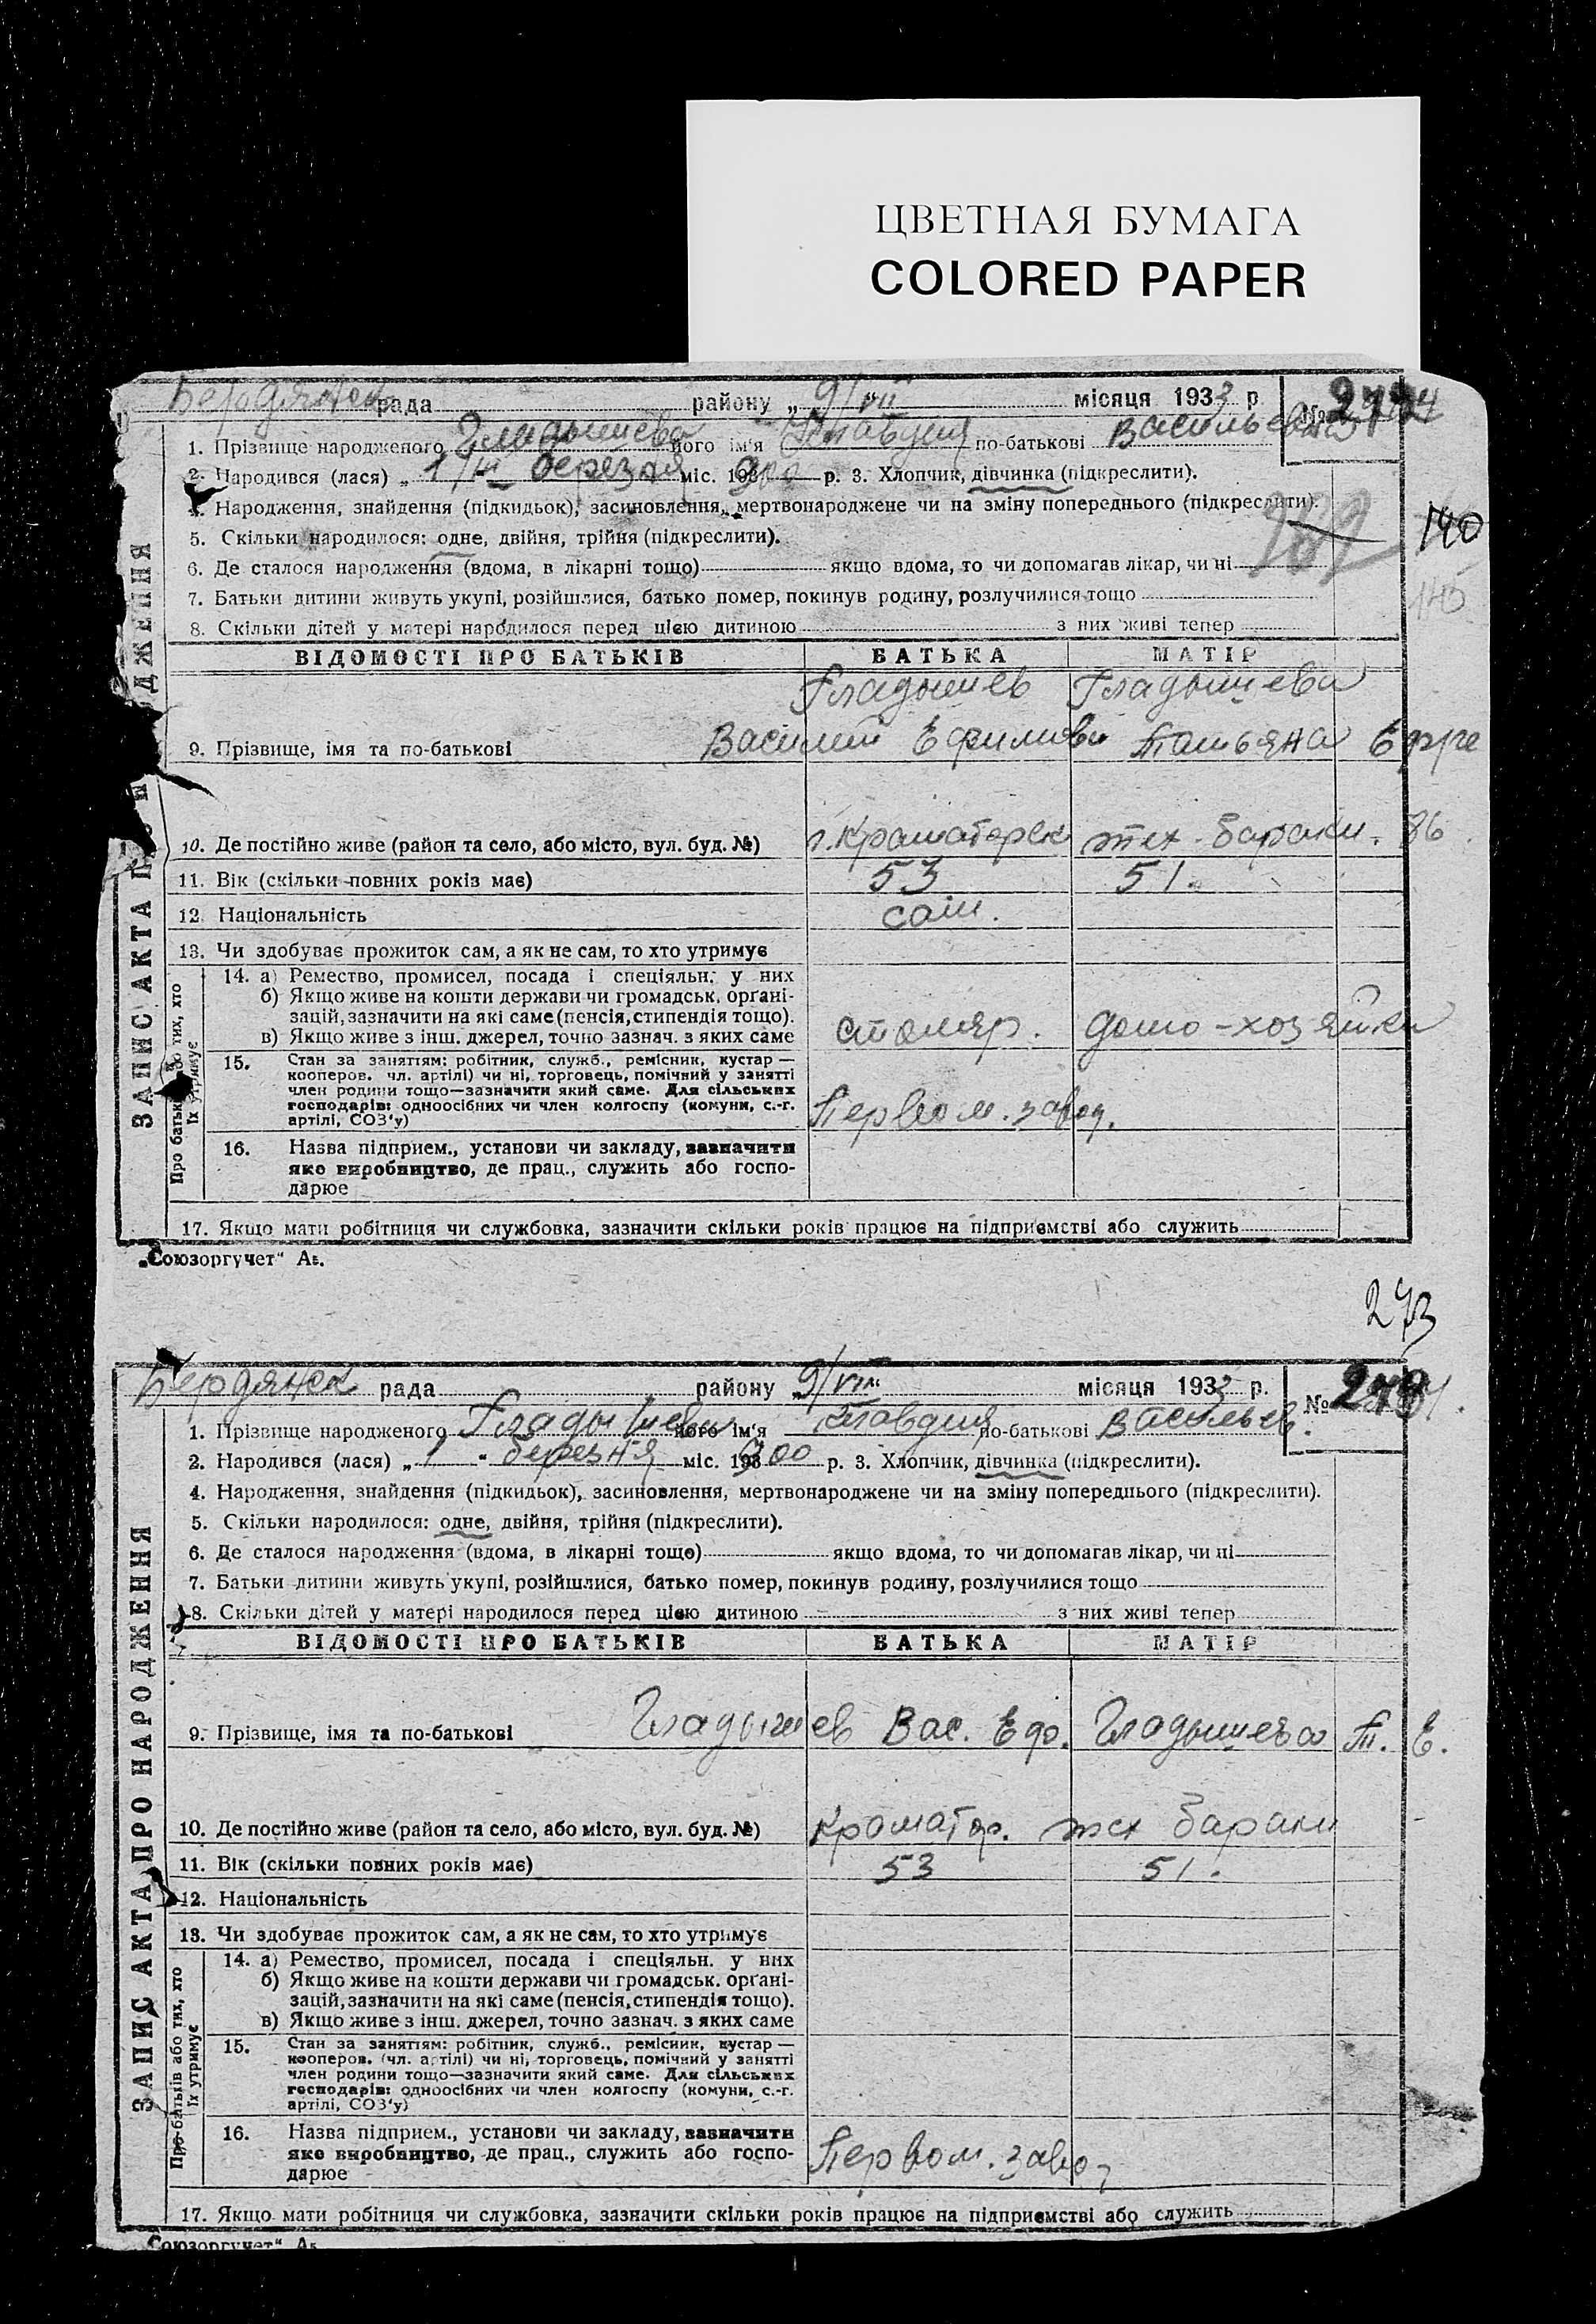 ЦВЕТНАЯ БУМАГА
COLORED PAPER
Бердянск рада району „ 9/VII місяця 1933 р. №
1. Прізвище народженого Гладышева його ім'я Клавдия по-батькові Васильевна
2. Народився (лася) „ 1/III березня міс. 1900 р. 3. Хлопчик, дівчинка (підкреслити).
4. Народження, знайдення (підкидьок), засиновлення, мертвонароджене чи на зміну попереднього (підкреслити).
140
5. Скільки народилося: одне, двійня, трійня (підкреслити).
6. Де сталося народження (вдома, в лікарні тощо) якщо вдома, то чи допомагав лікар, чи ні
7. Батьки дитини живуть укупі, розійшлися, батько помер, покинув родину, розлучилися тощо
140
8. Скільки дітей у матері народилося перед цією дитиною з них живі тепер
ВІДОМОСТІ ПРО БАТЬКІВ БАТЬКА МАТІР
Гладышев Гладышева
9. Прізвище, імя та по-батькові Василий Ефимови Татьяна
10. Де постійно живе (район та село, або місто, вул. буд. №) г. Краматорск жех - бараки. 86
11. Вік (скільки повних років має) 53 51.
12. Національність
13. Чи здобуває прожиток сам, а як не сам, то хто утримує
ЗАПИС АКТА
Про батьків або тих, хто їх утримує
14. а) Ремество, промисел, посада і спеціяльн. у них
б) Якщо живе на кошти держави чи громадськ. органі-
зацій, зазначити на які саме (пенсія, стипендія тощо).
в) Якщо живе з інш. джерел, точно зазнач. з яких саме столяр. домо-хозяйка
15. Стан за заняттям: робітник, служб., ремісник, кустар —
кооперов. чл. артілі) чи ні, торговець, помічний у занятті
член родини тощо—зазначити який саме. Для сільських
господарів: одноосібних чи член колгоспу (комуни, с.-г.
артілі, СОЗ'у) Первом. завод.
16. Назва підприєм., установи чи закладу, зазначити
яке виробництво, де прац., служить або госпо-
дарює
17. Якщо мати робітниця чи службовка, зазначити скільки років працює на підприємстві або служить
„Союзоргучет“ Ав.
273
Бердянск рада району „ 9/VIII місяця 1933 р. №
1. Прізвище народженого Гладышева його ім'я Клавдия по-батькові Васильев.
2. Народився (лася) „ 1 “ березня міс. 1900 р. 3. Хлопчик, дівчинка (підкреслити).
4. Народження, знайдення (підкидьок), засиновлення, мертвонароджене чи на зміну попереднього (підкреслити).
5. Скільки народилося: одне, двійня, трійня (підкреслити).
6. Де сталося народження (вдома, в лікарні тощо) якщо вдома, то чи допомагав лікар, чи ні
7. Батьки дитини живуть укупі, розійшлися, батько помер, покинув родину, розлучилися тощо
8. Скільки дітей у матері народилося перед цією дитиною з них живі тепер
ВІДОМОСТІ ПРО БАТЬКІВ БАТЬКА МАТІР
9. Прізвище, імя та по-батькові Гладышев Вас. Еф. Гладышева Т. Е.
10. Де постійно живе (район та село, або місто, вул. буд. №) Краматор. жех бараки
11. Вік (скільки повних років має) 53 51.
12. Національність
13. Чи здобуває прожиток сам, а як не сам, то хто утримує
ЗАПИС АКТА ПРО НАРОДЖЕННЯ
Про батьків або тих, хто їх утримує
14. а) Ремество, промисел, посада і спеціяльн. у них
б) Якщо живе на кошти держави чи громадськ. органі-
зацій, зазначити на які саме (пенсія, стипендія тощо).
в) Якщо живе з інш. джерел, точно зазнач. з яких саме
15. Стан за заняттям: робітник, служб., ремісник, кустар —
кооперов. (чл. артілі) чи ні, торговець, помічний у занятті
член родини тощо—зазначити який саме. Для сільських
господарів: одноосібних чи член колгоспу (комуни, с.-г.
артілі, СОЗ'у)
16. Назва підприєм., установи чи закладу, зазначити
яке виробництво, де прац., служить або госпо-
дарює Первом. завод
17. Якщо мати робітниця чи службовка, зазначити скільки років працює на підприємстві або служить
„Союзоргучет“ Ав.